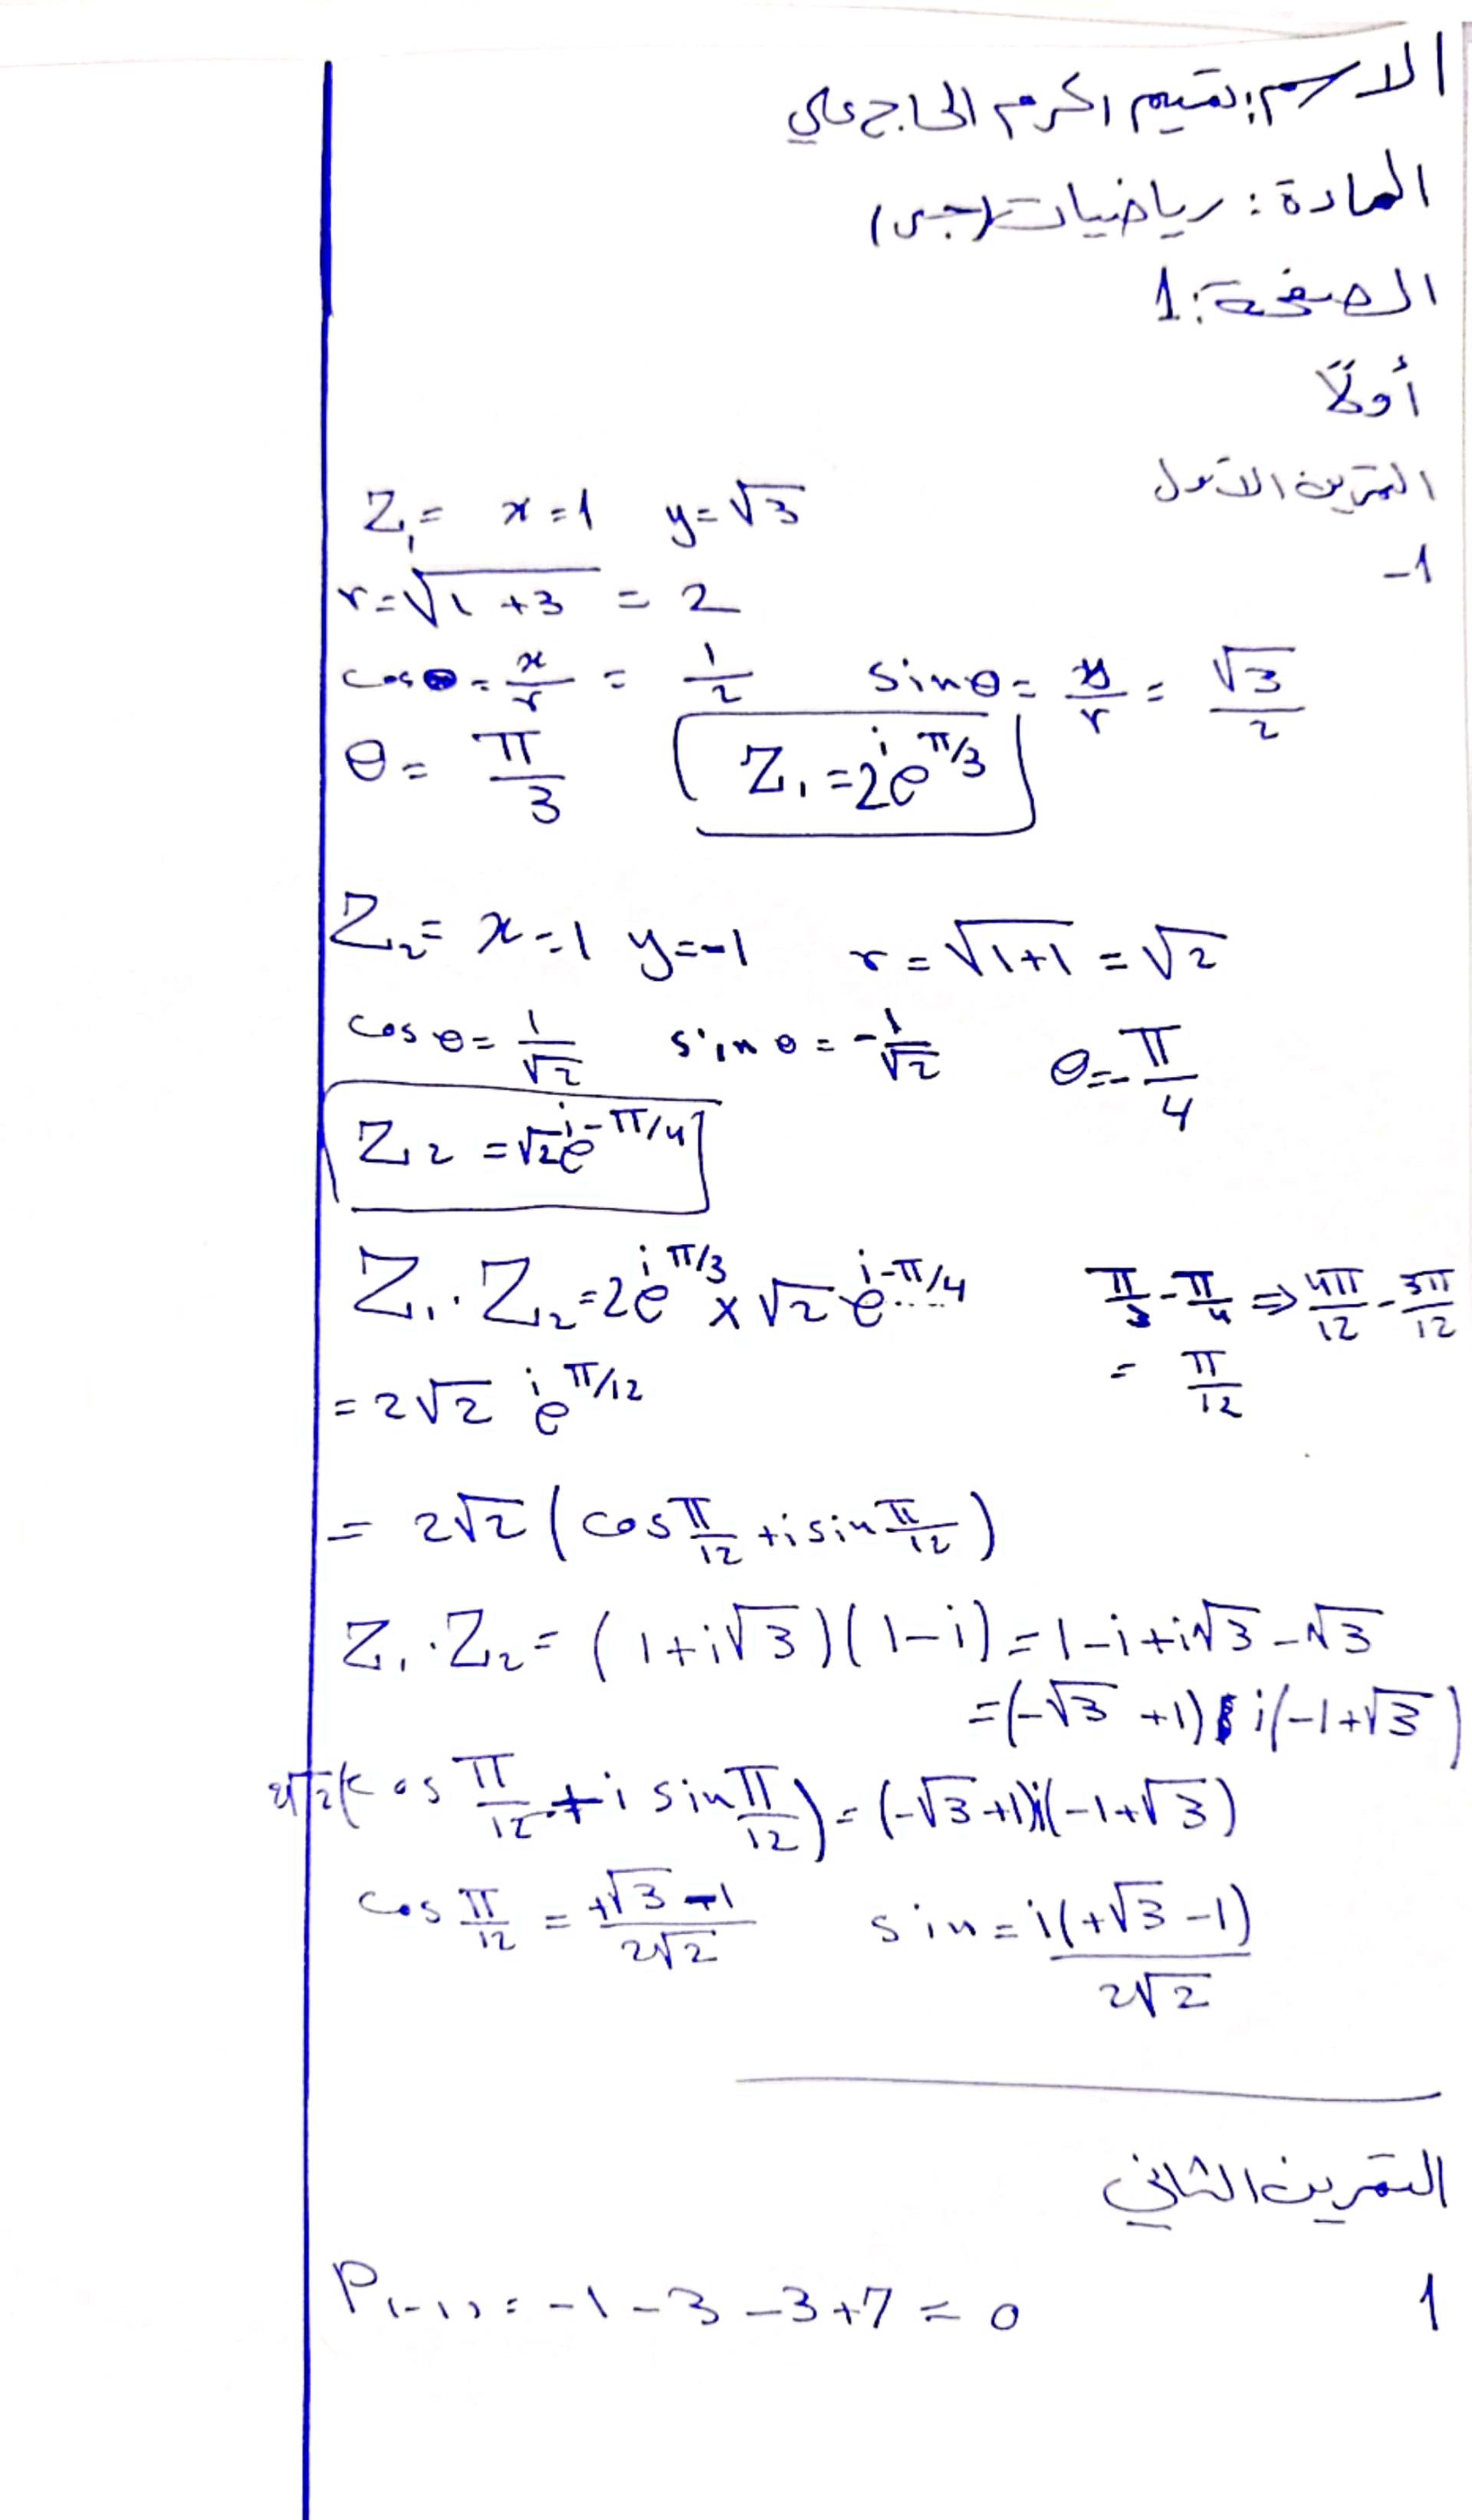 الاسم: تقسيم اكرم الحاج علي
المادة: رياضيات (جبر)
الصفحة: 1
أولاً
التمرين الاول
-1
Z₁ = x=1 y=√3
r=√(1+3) = 2
cosθ = x/r = 1/2 sinθ = y/r = √3/2
θ = π/3 Z₁ = 2e^(iπ/3)
Z₂ = x=1 y=-1 r=√(1+1) = √2
cosθ = 1/√2 sinθ = -1/√2 θ = -π/4
Z₂ = √2e^(i-π/4)
Z₁.Z₂ = 2e^(iπ/3) x √2 e^(i-π/4) π/3 - π/4 ⇒ 4π/12 - 3π/12
= 2√2 e^(iπ/12) = π/12
= 2√2 (cos π/12 + i sin π/12)
Z₁.Z₂ = (1+i√3)(1-i) = 1-i+i√3-√3
= (-√3+1) i(-1+√3)
2√2(cos π/12 + i sin π/12) = (-√3+1)i(-1+√3)
cos π/12 = (+√3-1)/2√2 sin = i(+√3-1)/2√2
التمرين الثاني
1
P(-1) = -1-3-3+7 = 0